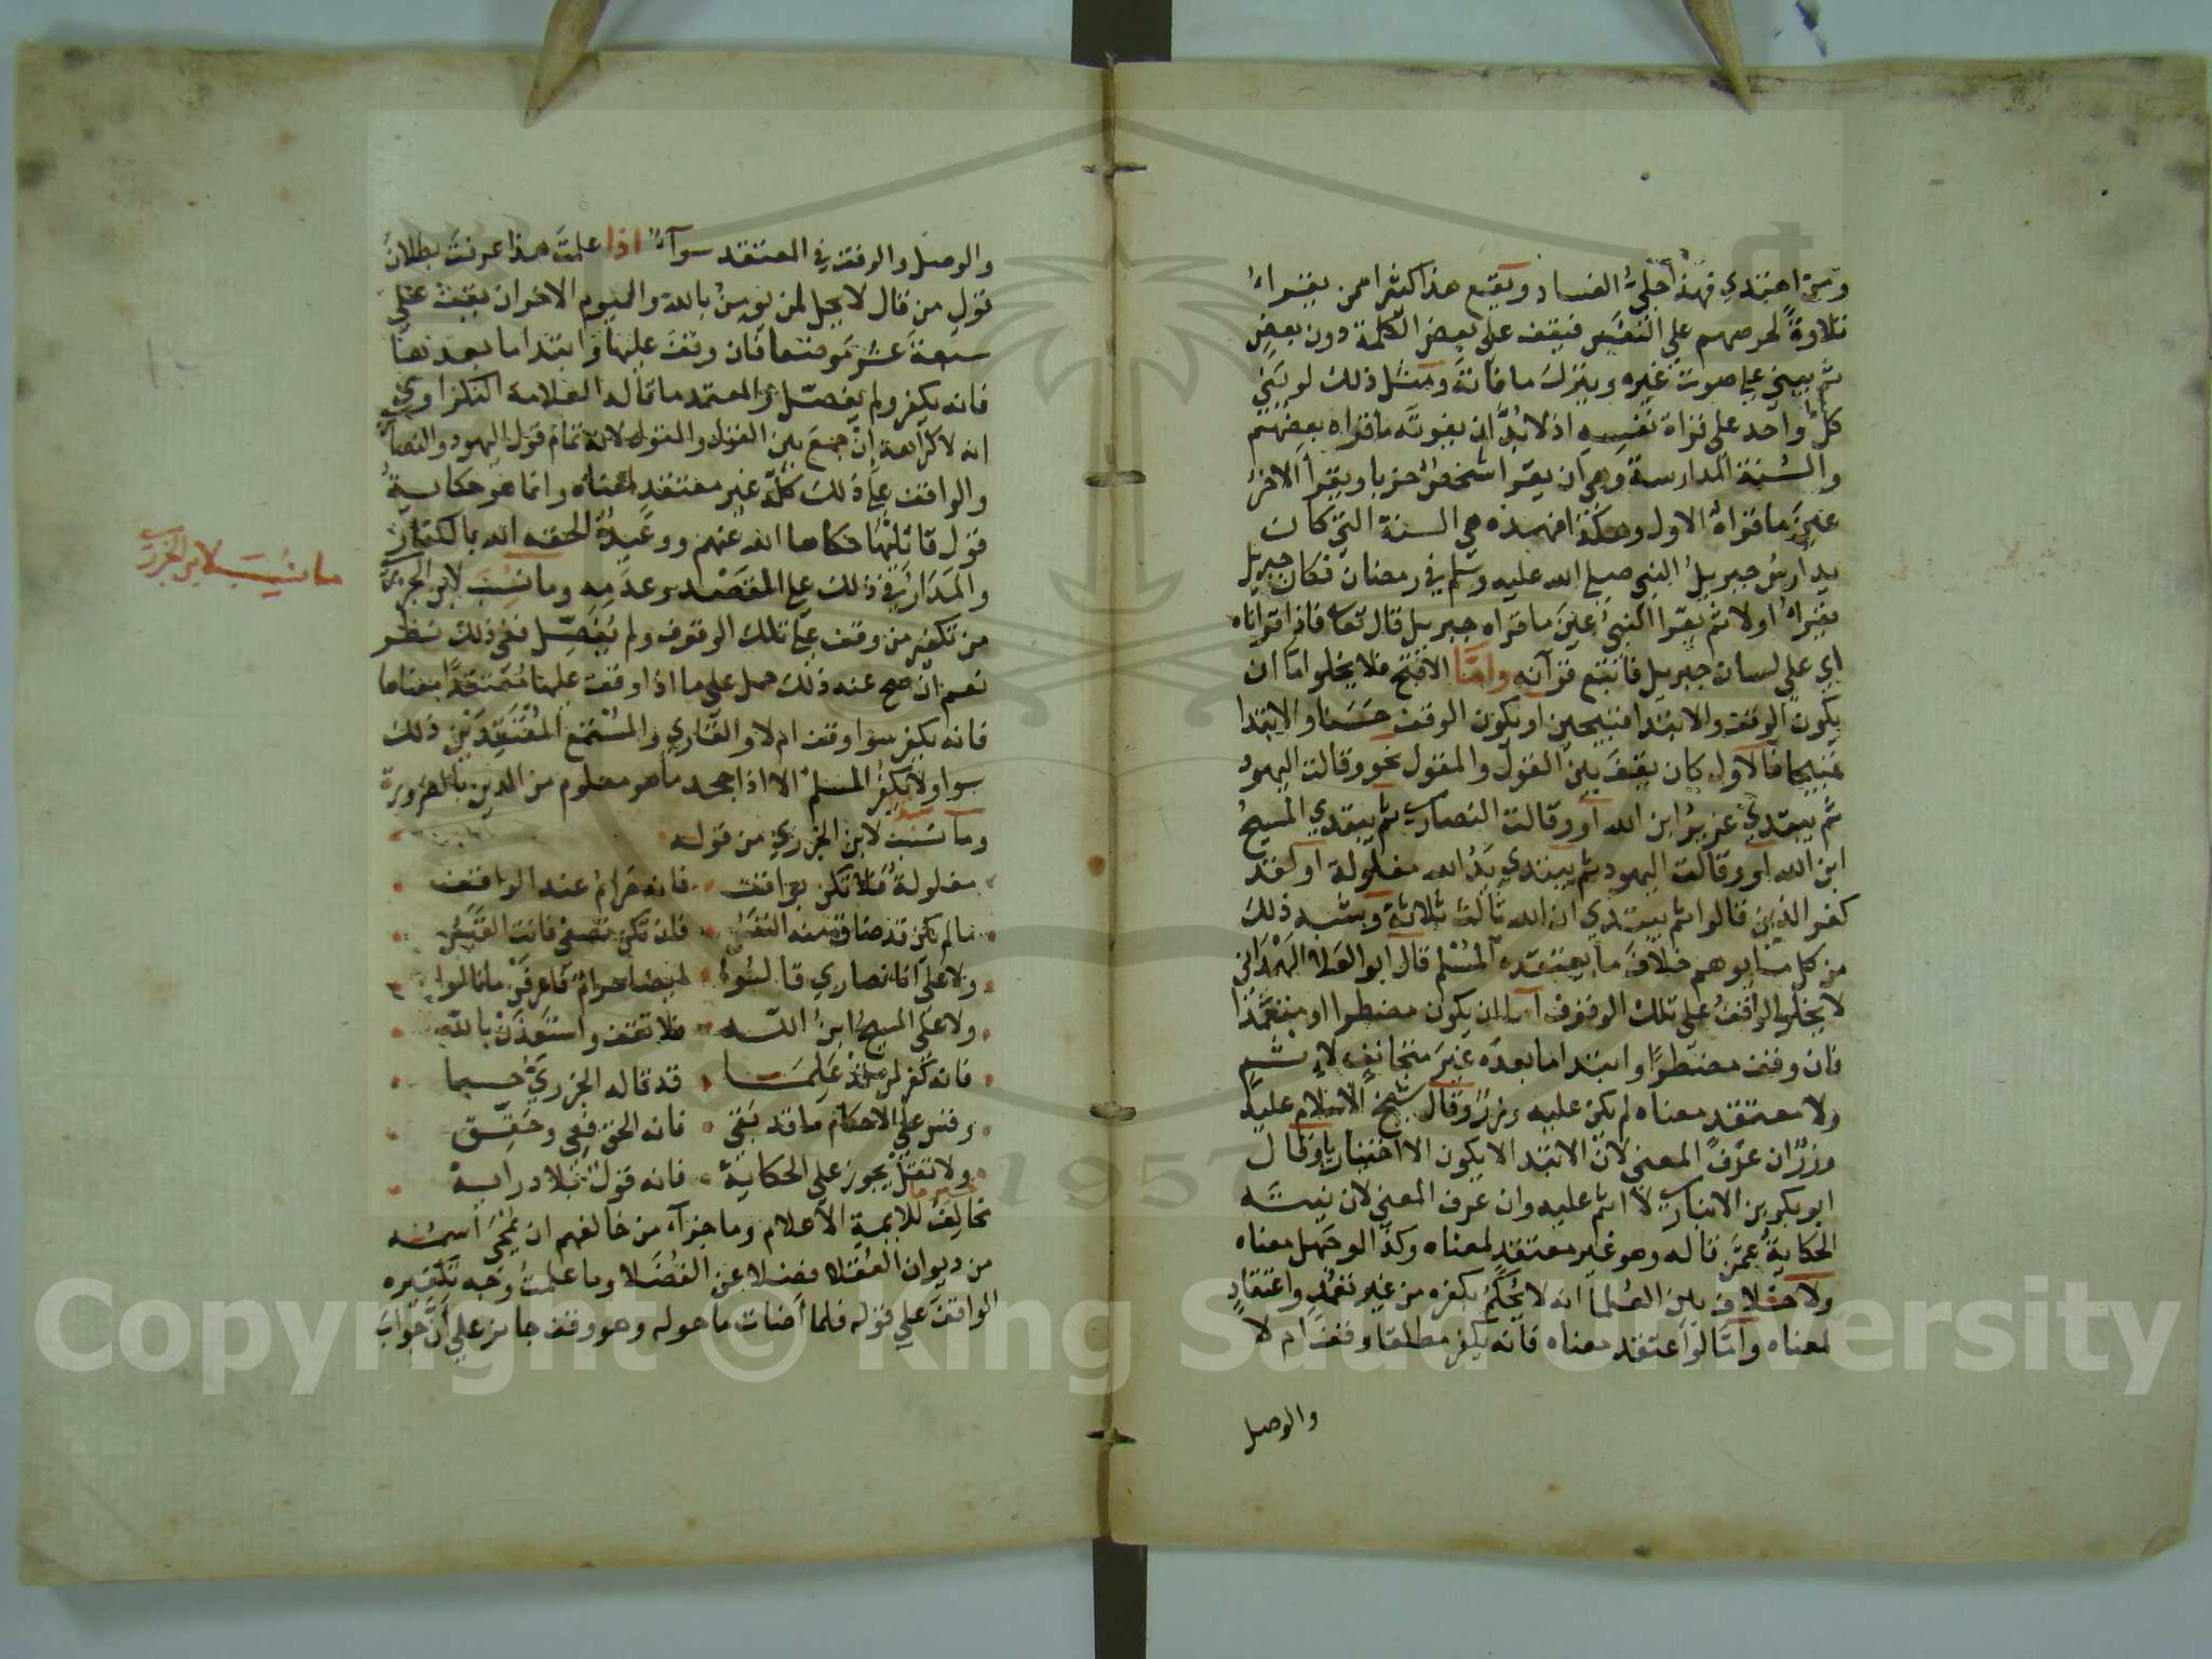 ومن اهتدي فهذا جليّ الفساد ويقع هذا كثيرا ممن يقراء
تلاوة لحرصهم علي النفس فيقف على بعض الكلمة دون بعض
ثم يبني علي صوت غيره ويترك ما فاته ومثل ذلك لو بني
كل واحد على قراة نفسه اذ لا بد ان يفوته ما قراه بعضهم
والسنة المدارسة وهي ان يقرا شخص حزبا ويقرأ الاخر
عين ما قراه الاول وهكذا فهذه هي السنة التي كان
يدارس جبريل النبي صلى الله عليه وسلم في رمضان فكان جبريل
يقراه اولا ثم يقرا النبي عين ما قراه جبريل قال تعالى فاذا قراناه
اي على لسان جبريل فاتبع قرآنه واما الاقبح فلا يخلوا اما ان
يكون الوقف والابتدا قبيحين او يكون الوقف حسنا والابتدا
قبيحا فالاول كان يقف بين القول والمقول نحو وقالت اليهود
ثم يبتدي عزير ابن الله او وقالت النصارى ثم يبتدي المسيح
ابن الله او وقالت اليهود ثم يبتدي يد الله مغلولة او لقد
كفر الذين قالوا ثم يبتدي ان الله ثالث ثلاثة وشبه ذلك
من كل ما يوهم خلاف ما يعتقده المسلم قال ابو العلا الهمداني
لا يخلوا الواقف على تلك الوقوف اما ان يكون مضطرا او متعمدا
فان وقف مضطرا وابتدا ما بعده غير متجانف لاثم
ولا معتقد معناه لم يكن عليه وزر وقال شيخ الاسلام عليه
وزر ان عرف المعنى لان الابتدا لا يكون الا اختياريا وقال
ابو بكر بن الانباري لا اثم عليه وان عرف المعنى لان نيته
الحكاية عمن قاله وهو غير معتقد لمعناه وكذا لو جهل معناه
ولا خلاف بين العلما انه لا يحكم بكفره من غير تعمد واعتقاد
لمعناه واما لو اعتقد معناه فانه يكفر مطلقا وقف ام لا
والوصل
والوصل والوقف في المعتقد سوآء اذا علمت هذا عرفت بطلان
قول من قال لا يحل لمن يومن بالله واليوم الاخر ان يقف على
سبعة عشر موضعا فان وقف عليها وابتدا ما بعدها
فانه يكفر ولم يفصل والمعتمد ما قاله العلامة النكزاوي
انه لا كراهة ان جمع بين القول والمقول لانه تمام قول اليهود والنصارى
والواقف على ذلك كله غير معتقد لمعناه وانما هو حكاية
قول قائلها حكاها الله عنهم ووعيد الحقه الله بالكفار
والمدار في ذلك على القصد وعدمه وما نسب لابن الجزري
من تكفير من وقف على تلك الوقوف ولم يفصل ففي ذلك نظر
نعم ان صح عنه ذلك حمل على ما اذا وقف عليها معتقدا معناها
فانه يكفر سوا وقف ام لا والقاري والمستمع المعتقدين ذلك
سوا ولا يكفر المسلم الا اذا جحد ما هو معلوم من الدين بالضرورة
وما نسب لابن الجزري من قوله
مغلولة فلا تكن بواقف فانه حرام عند الواقف
ما لم يكن قد ضاق منه النفس فان تكن تصغي فانت القبس
ولا على انا نصاري قالوا ايضا حرام فاعرفن ما قالوا
ولا على المسيح ابن الله فلا تقف واستعذن بالله
فانه كفر لمن قد علما قد قاله الجزري حسبما
وقس على الاحكام ما قد بقي فانه الحق فعي وحقق
ولا تقل يجوز على الحكاية فانه قول بلا دراية
تخالف للايمة الاعلام وما جزآء من خالفهم ان يمحى اسمه
من ديوان العقلا فضلا عن الفضلا وما علمت وجه تكفيره
الواقف على قوله فلما اضات ما حوله وهو وقف جايز على ان جواب
ما نسب لابن الجزري
Copyright © King Saud University
1957